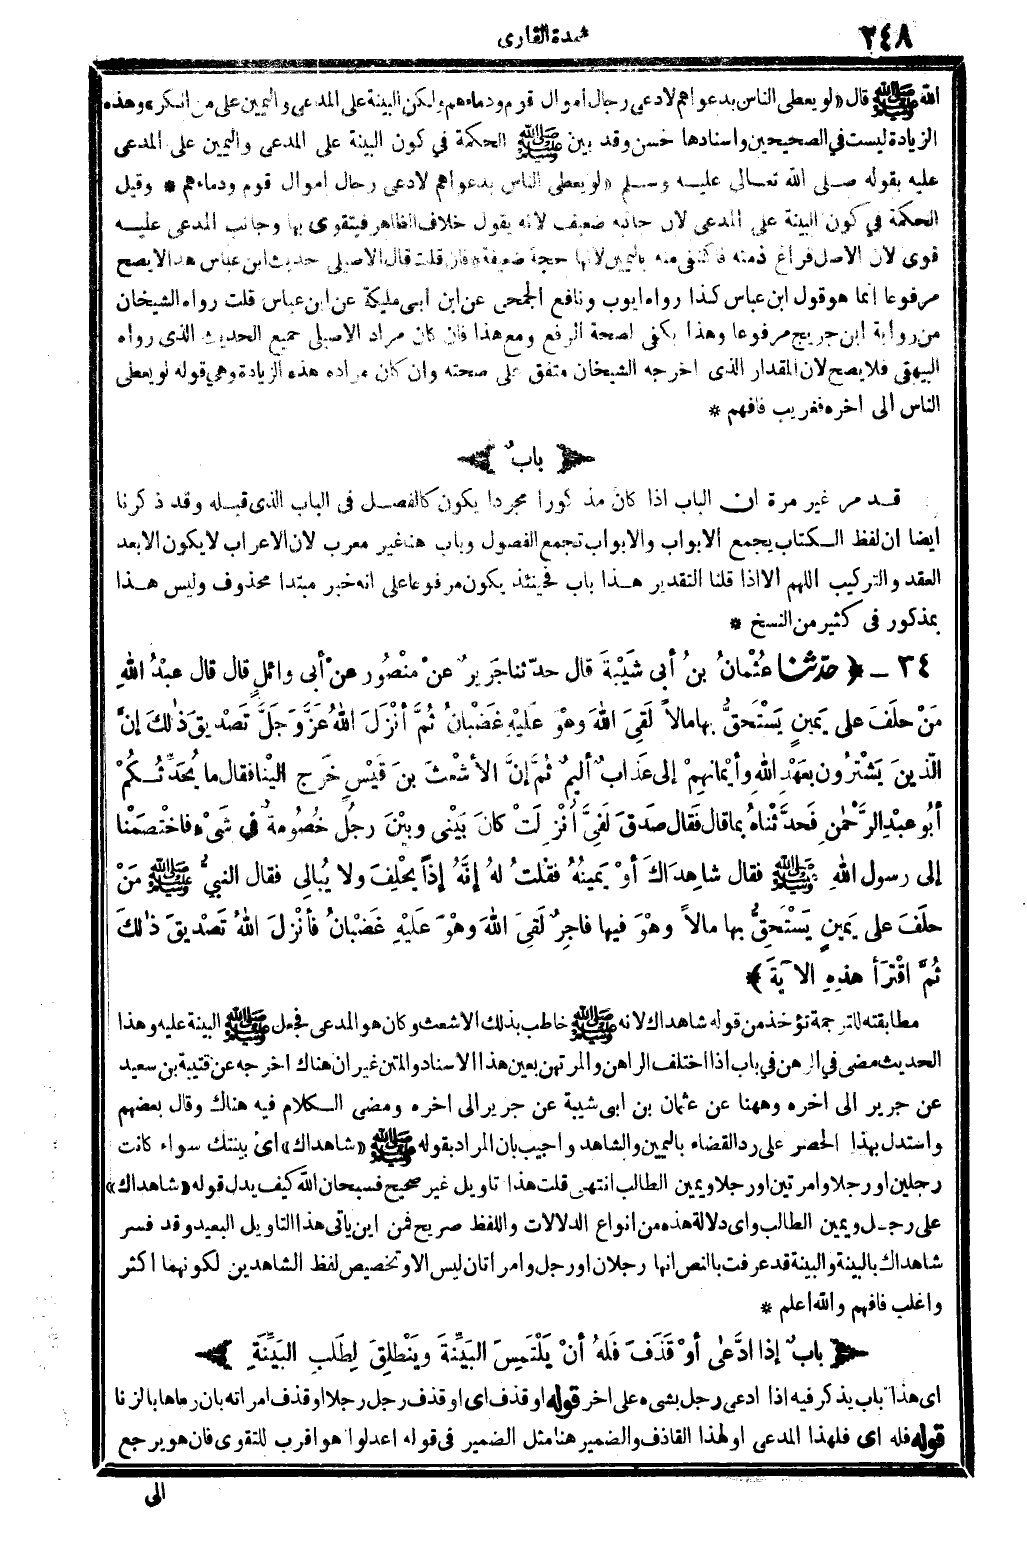 ٢٤٨
عمدة القارى
الله ﷺ قال «لو يعطى الناس بدعواهم لادعى رجال اموال قوم ودماءهم ولكن البينة على المدعى واليمين على من انكر» وهذه
الزيادة ليست في الصحيحين واسنادها حسن وقد بين ﷺ الحكمة في كون البينة على المدعى واليمين على المدعى
عليه بقوله صلى الله تعالى عليه وسلم «لو يعطى الناس بدعواهم لادعى رجال اموال قوم ودماءهم * وقيل
الحكمة في كون البينة على المدعى لان جانبه ضعيف لانه يقول خلاف الظاهر فيتقوى بها وجانب المدعى عليه
قوى لان الاصل فراغ ذمته فاكتفى منه باليمين لانها حجة ضعيفة * فان قلت قال الاصيلى حديث ابن عباس هذا لا يصح
مرفوعا انما هو قول ابن عباس كذا رواه ايوب ونافع الجمحى عن ابن ابى مليكة عن ابن عباس قلت رواه الشيخان
من رواية ابن جريج مرفوعا وهذا يكفى لصحة الرفع ومع هذا فان كان مراد الاصيلى جميع الحديث الذى رواه
البيهقى فلا يصح لان المقدار الذى اخرجه الشيخان متفق على صحته وان كان مراده هذه الزيادة وهي قوله لو يعطى
الناس الى اخره فغريب فافهم *
باب
قد مر غير مرة ان الباب اذا كان مذكورا مجردا يكون كالفصل فى الباب الذى قبله وقد ذكرنا
ايضا ان لفظ الكتاب يجمع الابواب والابواب تجمع الفصول وباب هنا غير معرب لان الاعراب لا يكون الا بعد
العقد والتركيب اللهم الا اذا قلنا التقدير هذا باب فحينئذ يكون مرفوعا على انه خبر مبتدا محذوف وليس هذا
بمذكور فى كثير من النسخ *
٣٤ ـ ﴿ حدثنا عُثْمانُ بنُ أبى شَيْبَةَ قال حدّثنا جَرِيرٌ عنْ منْصُورٍ عنْ أبى وائلٍ قال قال عبْدُ اللهِ
مَنْ حلَفَ على يَمِينٍ يَسْتَحِقُّ بها مالاً لَقِىَ اللهَ وهْوَ عَلَيْهِ غَضْبانُ ثُمَّ أنْزَلَ اللهُ عَزَّ وجَلَّ تَصْدِيقَ ذٰلكَ إنَّ
الّذِينَ يَشْتَرُونَ بعَهْدِ اللهِ وأيْمانِهِمْ إلى عَذابٌ ألِيمٌ ثُمَّ إنَّ الأشْعثَ بنَ قَيْسٍ خَرَج إليْنا فقال ما يُحَدِّثُكُمْ
أبُو عبْدِ الرَّحْمٰنِ فَحدَّثْناهُ بما قال فقال صدَقَ لَفِىَّ أُنْزِلَتْ كانَ بَيْنِى وبيْنَ رجُلٍ خُصُومةٌ في شَىْءٍ فاخْتَصَمْنا
إلى رسولِ اللهِ ﷺ فقال شاهِدَاكَ أوْ يَمِينُهُ فقُلْتُ لهُ إنَّهُ إذاً يحْلِفَ ولا يُبالِى فقال النبيُّ ﷺ مَنْ
حلَفَ على يَمِينٍ يَسْتَحِقُّ بها مالاً وهْوَ فيها فاجِرٌ لَقِىَ اللهَ وهْوَ عَلَيْهِ غَضْبانُ فأنْزَلَ اللهُ تَصْدِيقَ ذٰلكَ
ثُمَّ اقْتَرَأ هذِهِ الآيَةَ ﴾
مطابقته للترجمة تؤخذ من قوله شاهداك لانه ﷺ خاطب بذلك الاشعث وكان هو المدعى فجعل ﷺ البينة عليه وهذا
الحديث مضى في الرهن في باب اذا اختلف الراهن والمرتهن بعين هذا الاسناد والمتن غير ان هناك اخرجه عن قتيبة بن سعيد
عن جرير الى اخره وههنا عن عثمان بن ابى شيبة عن جرير الى اخره ومضى الكلام فيه هناك وقال بعضهم
واستدل بهذا الحصر على رد القضاء باليمين والشاهد واجيب بان المراد بقوله ﷺ «شاهداك» اى بينتك سواء كانت
رجلين او رجلا وامرتين او رجلا ويمين الطالب انتهى قلت هذا تاويل غير صحيح فسبحان الله كيف يدل قوله «شاهداك»
على رجل ويمين الطالب واى دلالة هذه من انواع الدلالات واللفظ صريح فمن اين ياتى هذا التاويل البعيد وقد فسر
شاهداك بالبينة والبينة قد عرفت بالنص انها رجلان او رجل وامراتان ليس الا وتخصيص لفظ الشاهدين لكونهما اكثر
واغلب فافهم والله اعلم *
بابٌ إذا ادَّعٰى أوْ قذَفَ فَلهُ أنْ يَلْتَمِسَ البَيِّنَةَ ويَنْطلِقَ لِطَلَبِ البَيِّنَةِ
اى هذا باب يذكر فيه اذا ادعى رجل بشىء على اخر قوله او قذف اى او قذف رجل رجلا او قذف امراته بان رماها بالزنا
قوله فله اى فلهذا المدعى او لهذا القاذف والضمير هنا مثل الضمير فى قوله اعدلوا هو اقرب للتقوى فان هو يرجع
الى